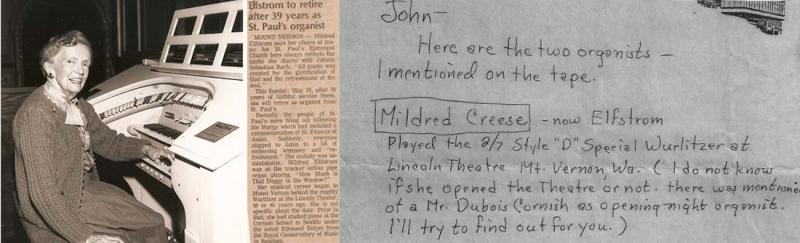 Elfstrom to retire
after 39 years as
St. Paul's organist
MOUNT VERNON — Mildred
Elfstrom says her choice of mu-
sic for St. Paul's Episcopal
Church here always reflects the
motto she shares with Johann
Sebastian Bach: "All music was
created for the glorification of
God and the refreshment of the
soul."
This Sunday, May 18, after 39
years of faithful service there,
she will retire as organist from
St. Paul's.
Recently the people of St.
Paul's were filing out following
the liturgy which had included a
commemoration of St. Francis of
Assisi. Suddenly, everyone
stopped to listen to a bit of
endearing whimsy and "re-
freshment." The melody was un-
mistakable. Mildred Elfstrom
was at the tracker action pipe
organ playing, "How Much is
That Doggy in the Window?"
Her musical career began in
Mount Vernon behind the mighty
Wurlitzer at the Lincoln Theater,
or years ago. She is not
specific about the date. Prior to
that, she had studied piano at the
Cornish School in Seattle under
the noted Edouard
the Royal Conservatory of Music
in Belgium.
John-
Here are the two organists -
I mentioned on the tape.
Mildred Creese - now Elfstrom
Played the 2/7 Style "D" Special Wurlitzer at
Lincoln Theatre Mt. Vernon, Wa. ( I do not know
if she opened the Theatre or not. there was mentioned
of a Mr. Dubois Cornish as opening night organist.
I'll try to find out for you. )